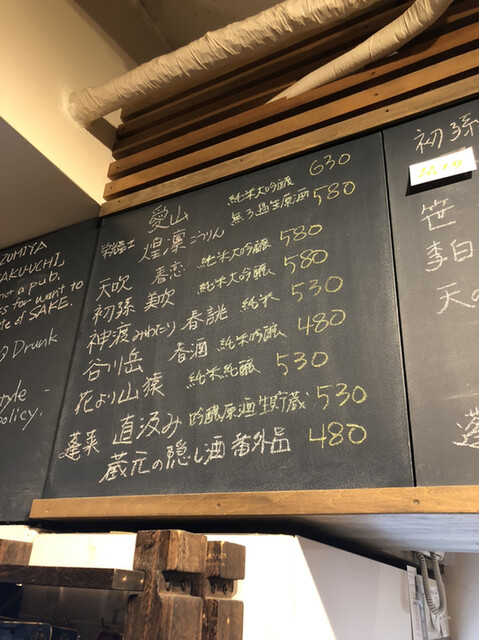 ZUMIYA
AKU-UCHI
not a pub.
s for want to
te of SAKE.
Drunk
style -
policy.
愛山 純米大吟醸 630
栄光冨士 煌凛 こうりん 無ろ過生原酒 580
天吹 春恋 純米大吟醸 580
初孫 美吹 純米大吟醸 580
神渡 みわたり 春誂 純米 530
谷川岳 春酒 純米吟醸 480
花より山猿 純米純醸 530
蓬莱 直汲み 吟醸原酒生貯蔵 530
蔵元の隠し酒 番外品 480
初孫
笹
李白
天の
蓬